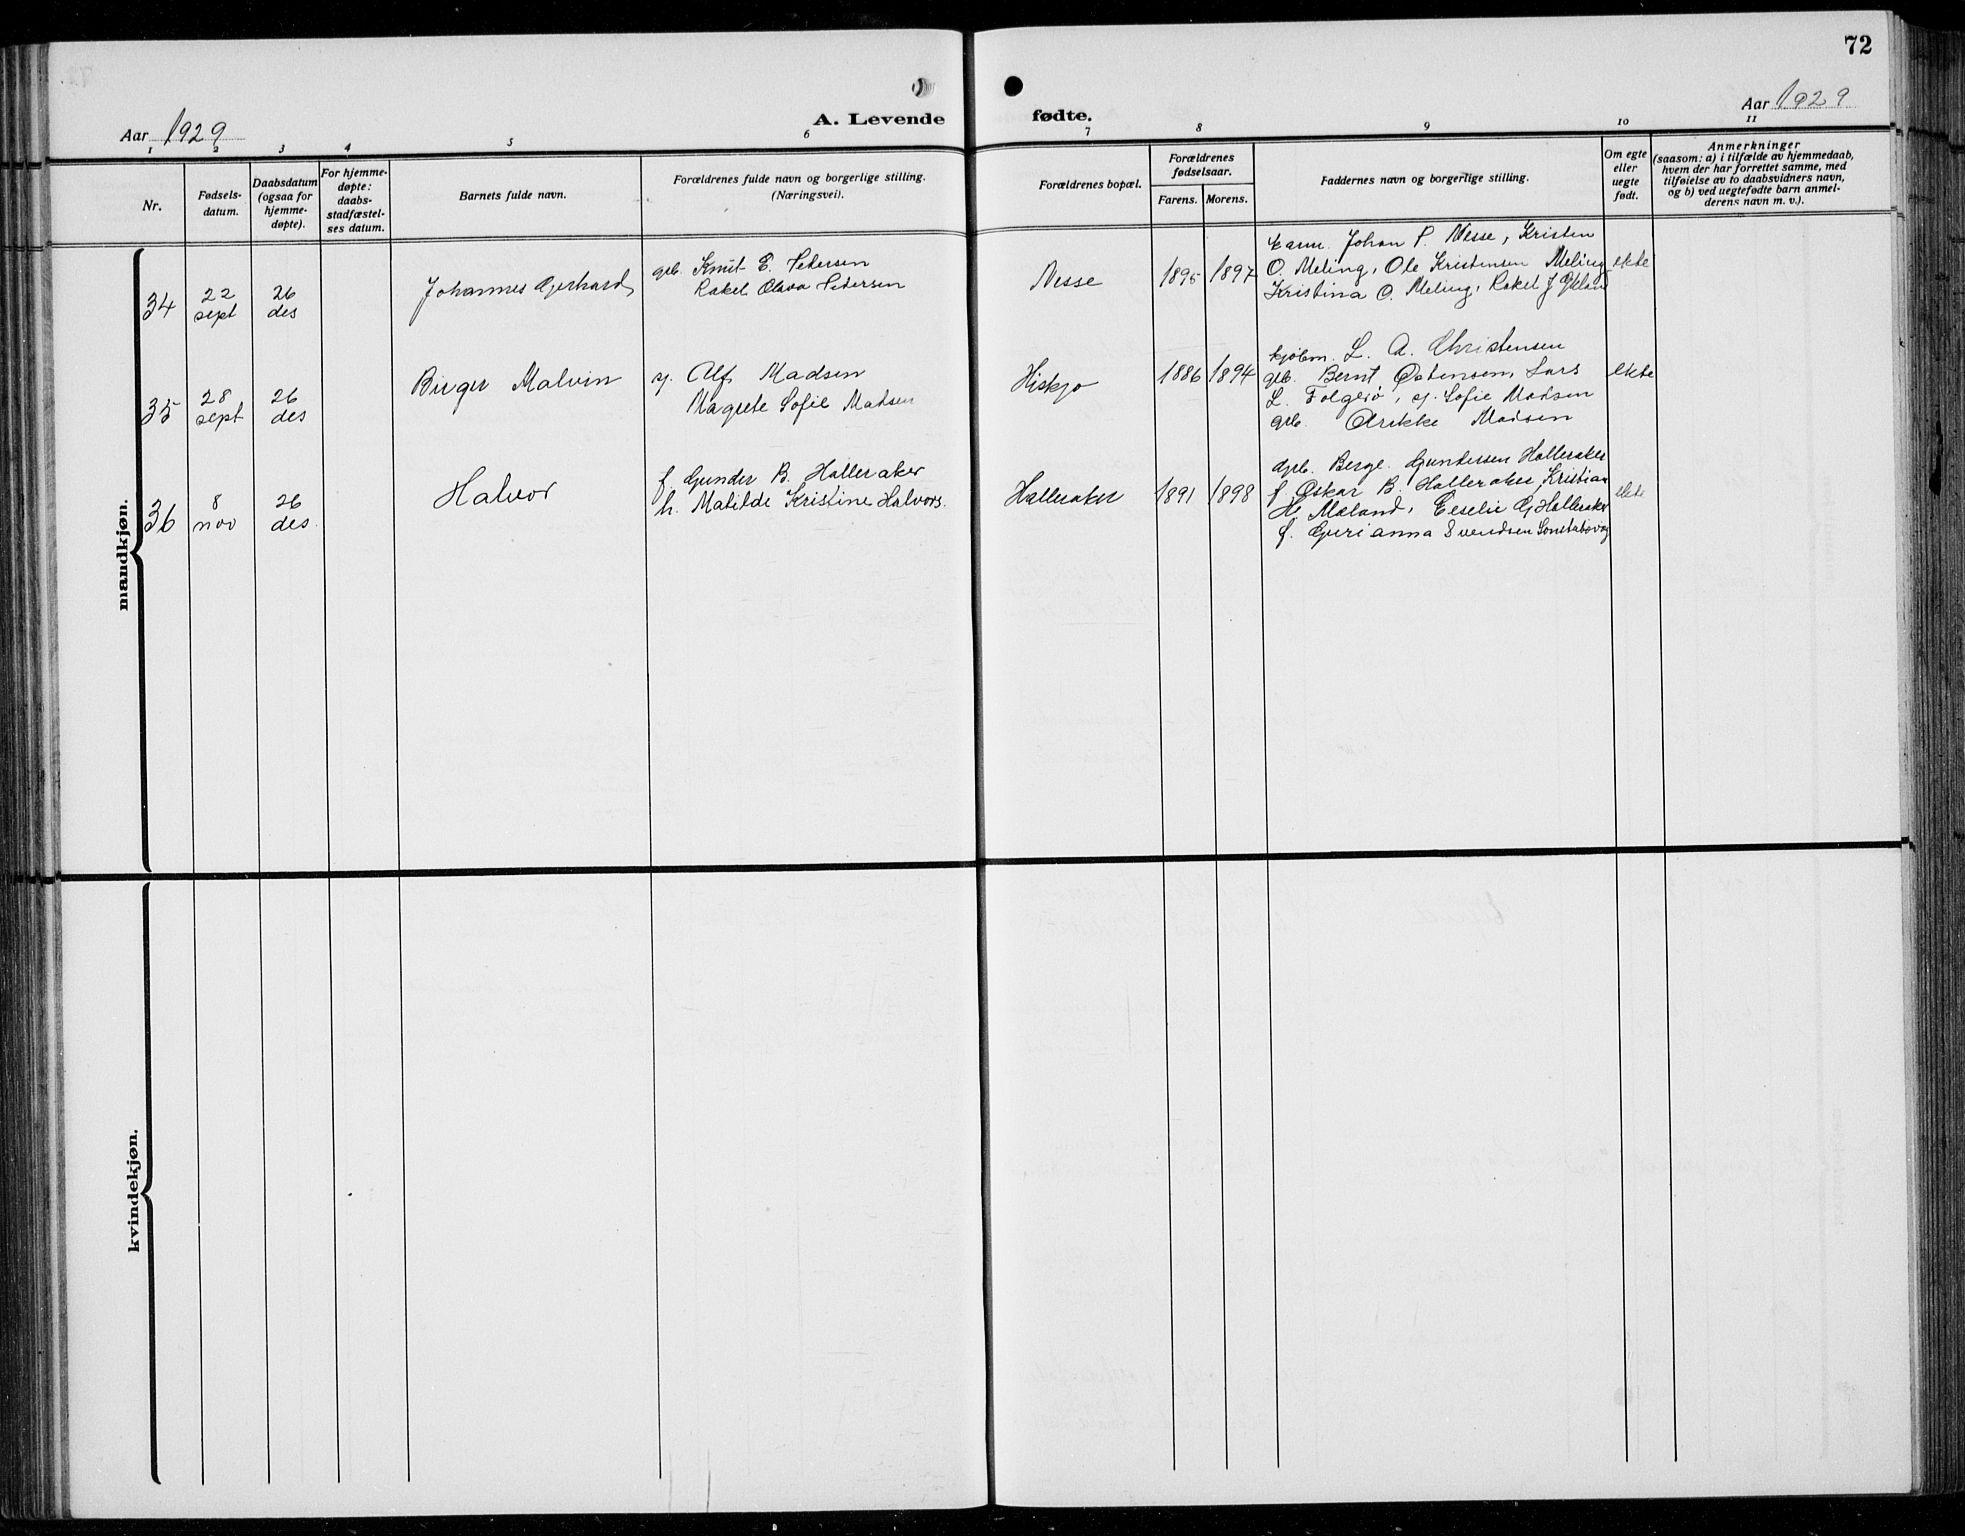 72
Aar 1929
A. Levende
fødte.
Aar 1929
1 2 3 4 5 6 7 8 9 10 11
Nr.
Fødsels-
datum.
Daabsdatum
(ogsaa for
hjemme-
døpte).
For hjemme-
døpte:
daabs-
stadfæstel-
ses datum.
Barnets fulde navn.
Forældrenes fulde navn og borgerlige stilling.
(Næringsvei).
Forældrenes bopæl.
Forældrenes
fødselsaar.
Farens. Morens.
Faddernes navn og borgerlige stilling.
Om egte
eller
uegte
født.
Anmerkninger
(saasom: a) i tilfælde av hjemmedaab,
hvem der har forrettet samme, med
tilføielse av to daabsvidners navn,
og b) ved uegtefødte barn anmel-
derens navn m. v.).
mandkjøn.
34
22
sept
26
des
Johannes Gerhard
grb. Knut E. Petersen
Rakel Olava Petersen
Nesse
1895 1897
Johan P. Nesse, Kristen
O. Meling, Ole Kristensen Meling
Kristina O. Meling, Rakel J.
ekte
35
28
sept
26
des
Birger Malvin
Alf Madsen
Magrete Sofie Madsen
Hiskjo
1886 1894
kjøbm. L. A. Christensen
grb. Bernt Østensen, Lars
L. Folgerø, Sofie Madsen
grb. Madsen
ekte
36
8
nov
26
des.
Halvor
f. Gunder B. Halleraker
h. Matilde Kristine Halvors.
Halleraker
1891 1898
grb. Berge Gundersen Halleraker
f. Oskar B. Halleraker, Kristian
Mæland, G. Halleraker
f. Gurianna Svendsen
ekte
kvindekjøn.